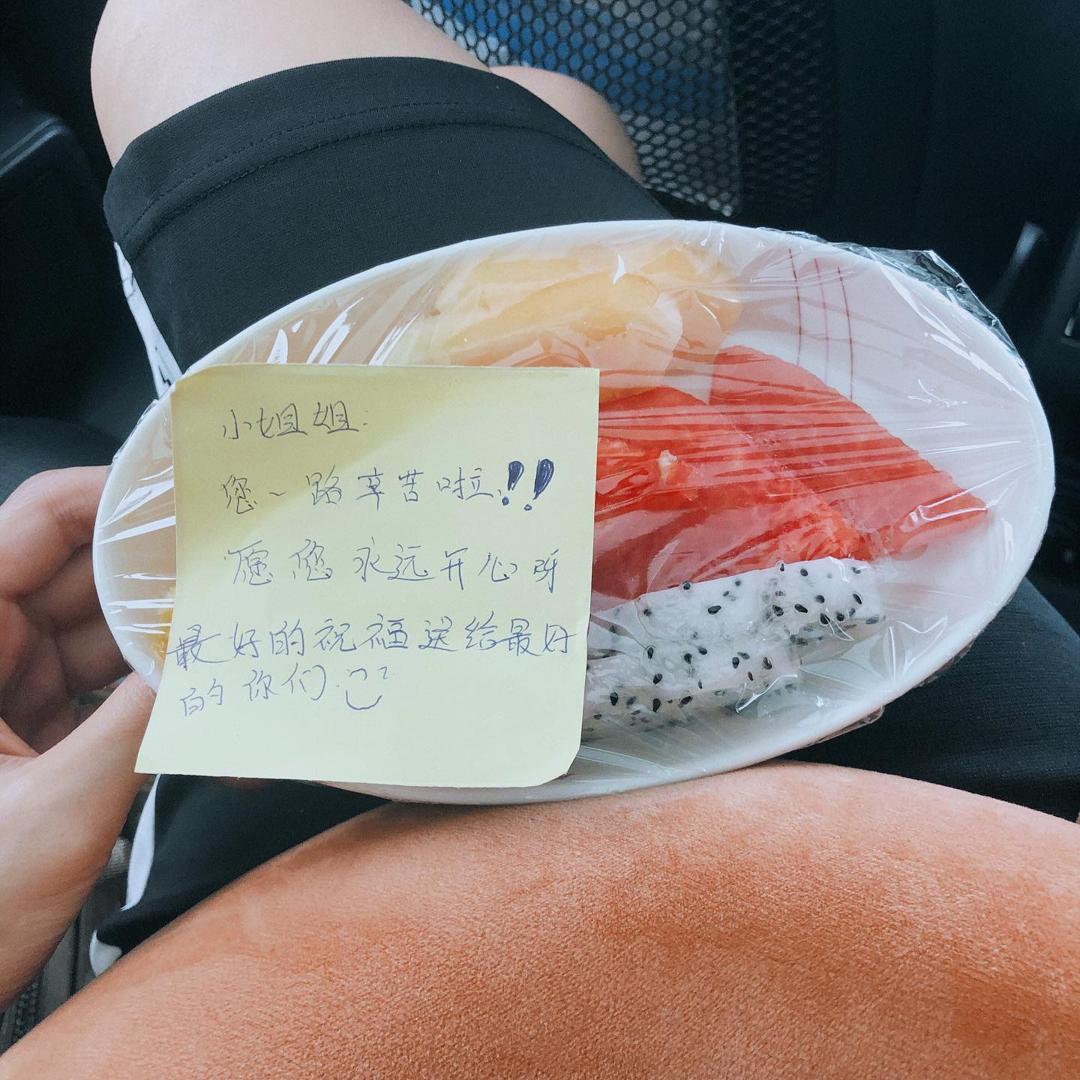 小姐姐:
您一路辛苦啦!!
愿您永远开心呀
最好的祝福送给最好
的你们